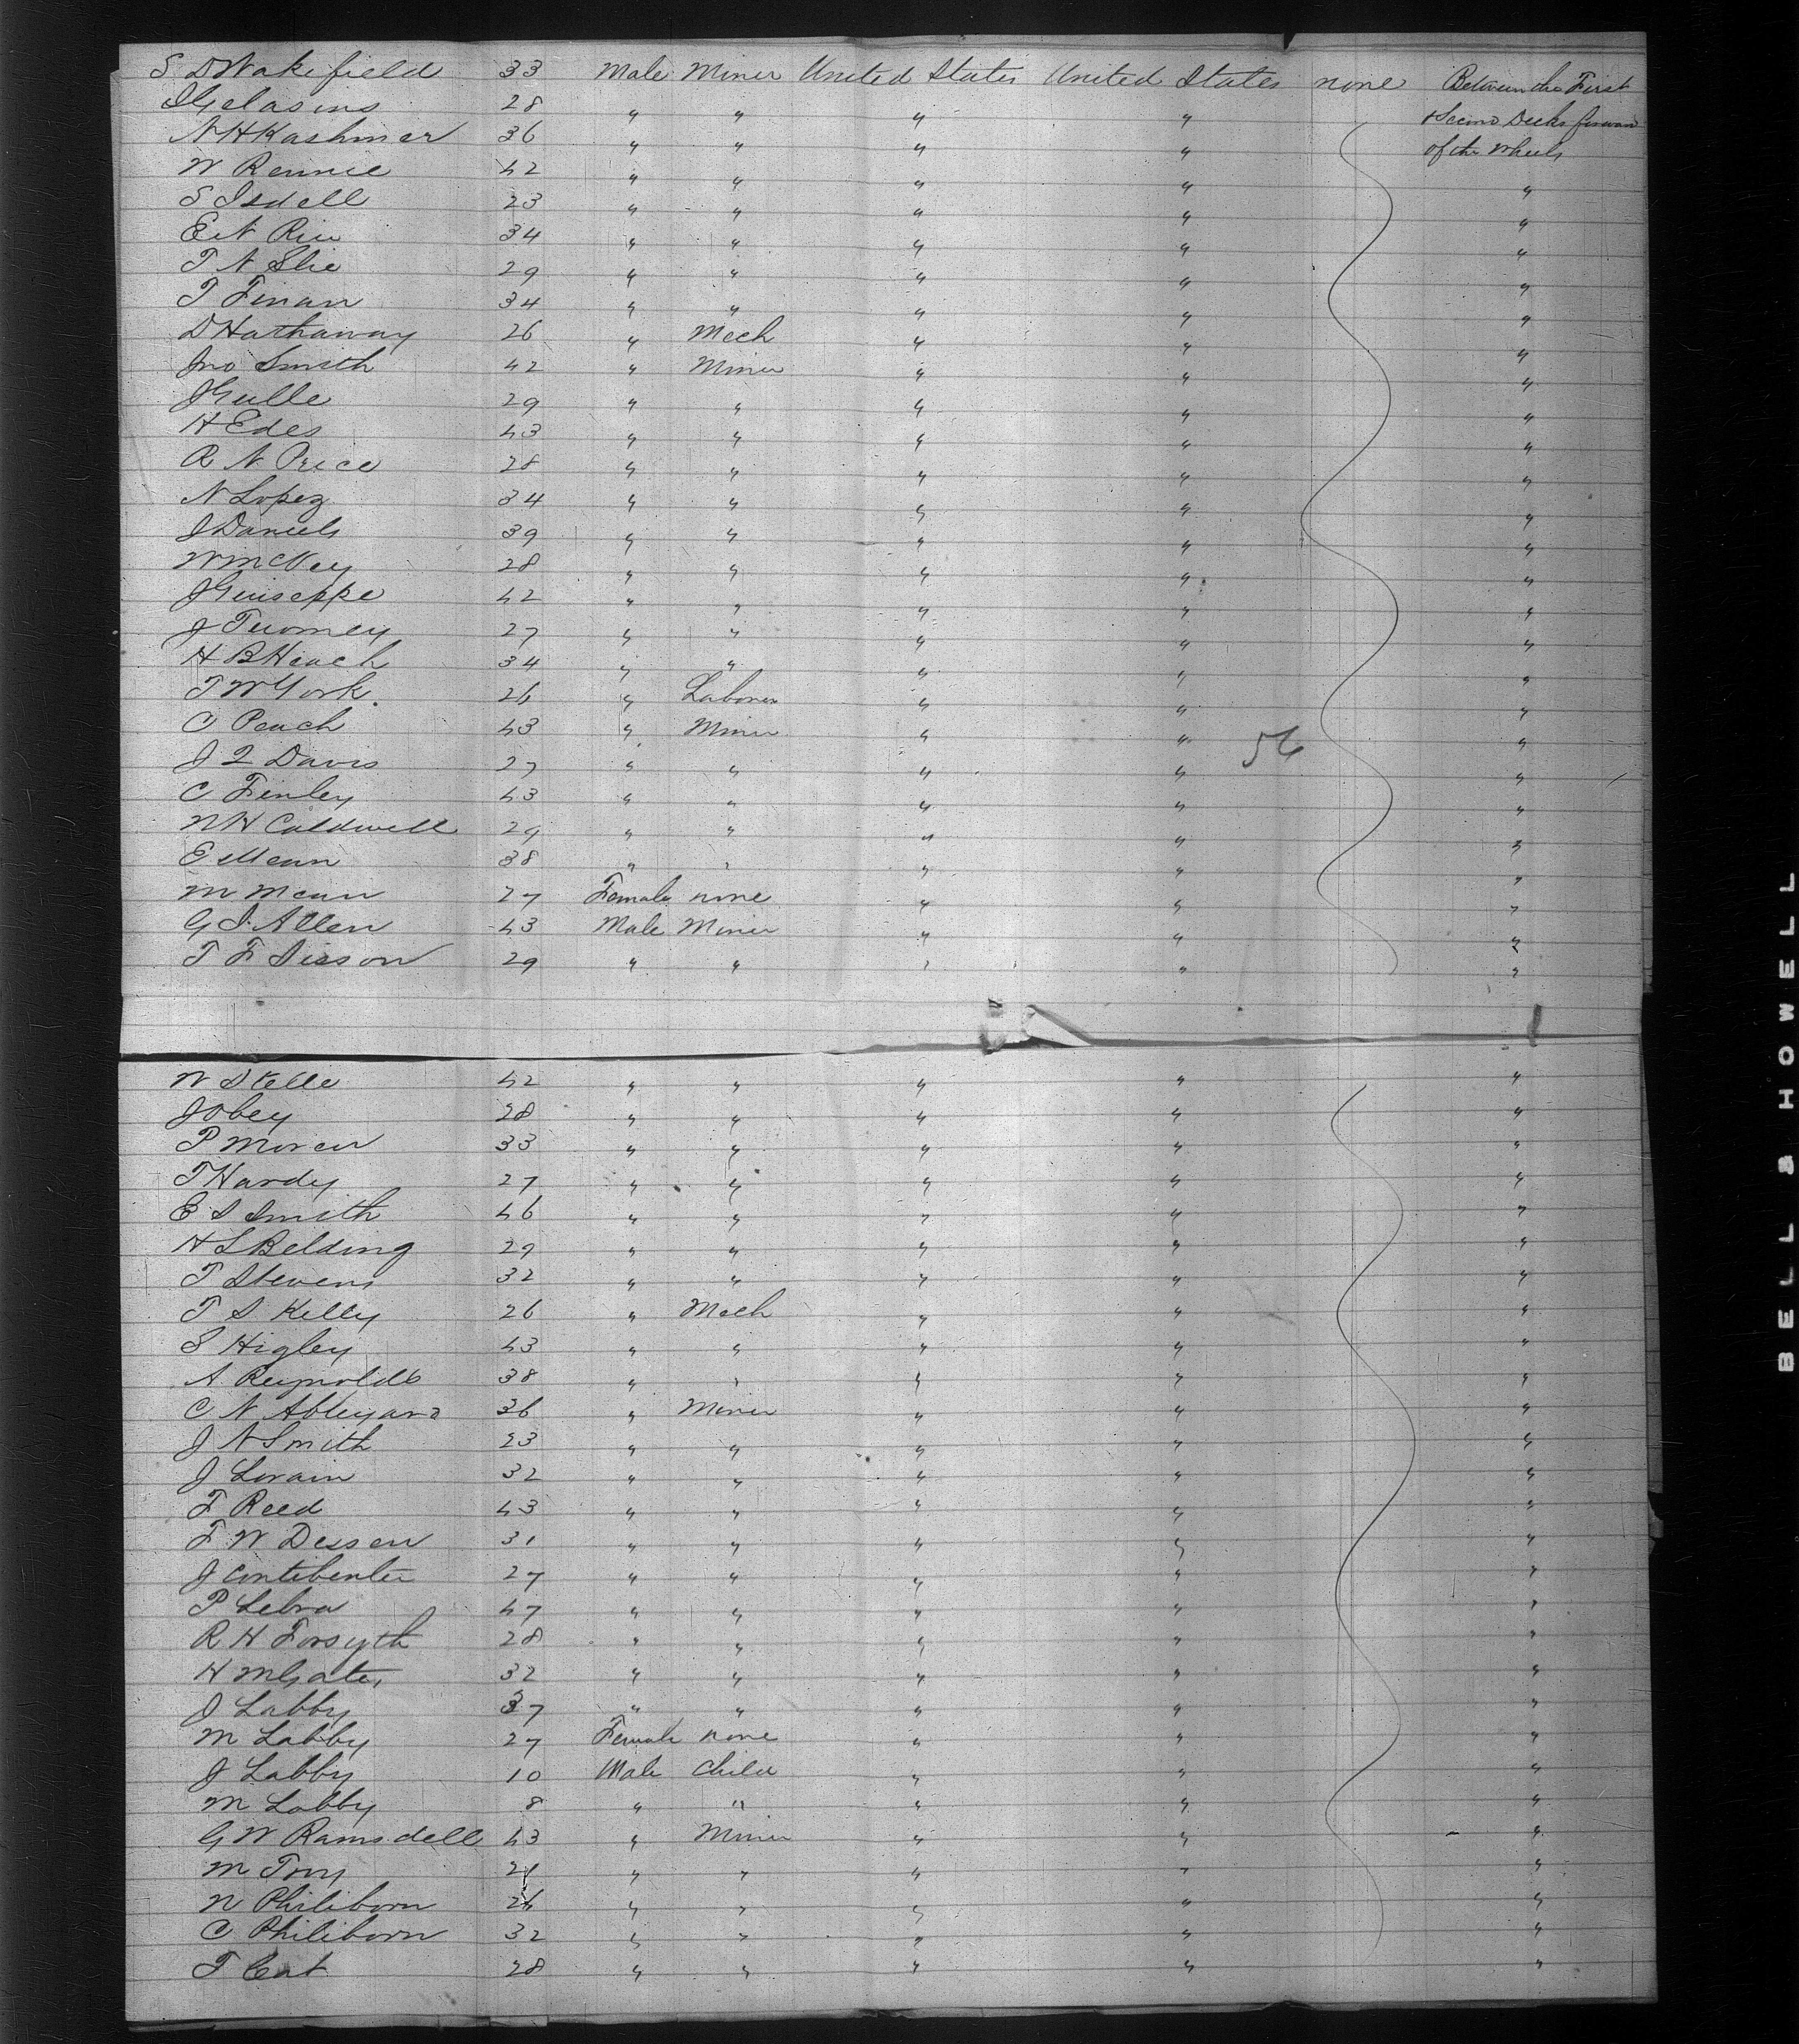 S D Wakefield 33 Male Miner United States United States none Between the First
J Gelasins 28 " " " " & Second Decks forward
N H Kashmer 36 " " " " of the Wheels
W Rennie 42 " " " " "
S Isdell 23 " " " " "
E N Rice 34 " " " " "
T N Slie 29 " " " " "
T Finan 34 " " " " "
D Hathaway 26 " Mech " " "
Jno Smith 42 " Miner " " "
J Gulle 29 " " " " "
H Edes 43 " " " " "
R N Price 28 " " " " "
N Lopez 34 " " " " "
J Daniels 39 " " " " "
Wm McKey 28 " " " " "
J Guiseppe 42 " " " " "
J Twomey 27 " " " " "
H B Heach 34 " " " " "
T W York 26 " Laborer " " "
C Peach 43 " Miner " " "
56
J Q Davis 27 " " " " "
C Finley 43 " " " " "
N H Caldwell 29 " " " " "
E Mean 38 " " " " "
M Mean 27 Female none " " "
G S Allen 43 Male Miner " " "
T F Sisson 29 " " " " "
W Stelle 42 " " " " "
J Obey 28 " " " " "
P Moren 33 " " " " "
T Hardy 27 " " " " "
E S Smith 46 " " " " "
H S Belding 29 " " " " "
T Stevens 32 " " " " "
T S Kelly 26 " Mech " " "
S Higley 43 " " " " "
A Reynolds 38 " " " " "
C N Ableyard 36 " Miner " " "
J N Smith 23 " " " " "
J Lorain 32 " " " " "
F Reed 43 " " " " "
F W Dessen 31 " " " " "
J Contibenter 27 " " " " "
P Lebra 47 " " " " "
R H Forsyth 28 " " " " "
H M Gates 32 " " " " "
J Labby 37 " " " " "
M Labby 27 Female none " " "
J Labby 10 Male Child " " "
M Labby 8 " " " " "
G W Ramsdell 43 " Miner " " "
M Tory 21 " " " " "
N Philiborn 26 " " " " "
C Philiborn 32 " " " " "
T Cat 28 " " " " "
BELL & HOWELL